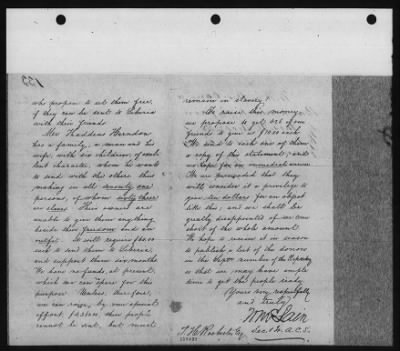 133
who propose to set them free,
if they can be sent to Liberia
with their friends.
Mr. Thaddeus Herndon
has a family, a man and his
wife, with six children, of excel-
lent character, whom he wants
to send with the others this
making in all seventy one
persons, of whom sixty three
are slaves. Their owners are
unable to give them anything
beside their freedom and an
outfit. It will require $60.00
each to send them to Liberia,
and support them six months.
We have no funds, at present,
which we can spare for this
purpose. Unless, therefore,
we can raise, by some special
effort, these people
cannot be sent, but must
remain in slavery!
To raise this money
we propose to get 426 of our
friends to give us $10.00 each.
We send to each one of them
a copy of this statement, and
we hope for an immediate answer.
We are persuaded that they
will consider it a privilege to
give ten dollars for an object
like this; and we shall be
greatly disappointed if we come
short of the whole amount.
We hope to receive it in season
to publish a list of the donors
in the Sept. number of the Repository
so that we may have ample
time to get the people ready.
Yours very respectfully
and truly,
W McLain
Sec. & Tr. A.C.S.